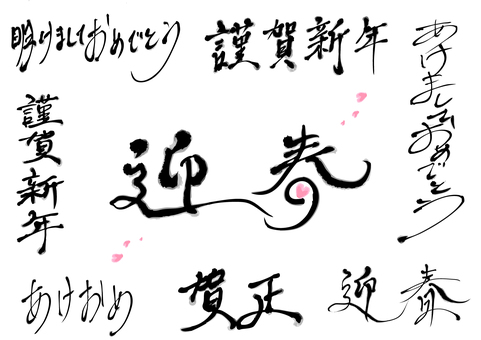 明けましておめでとう
謹賀新年
あけましておめでとう
謹賀新年
迎春
あけおめ
賀正
迎春